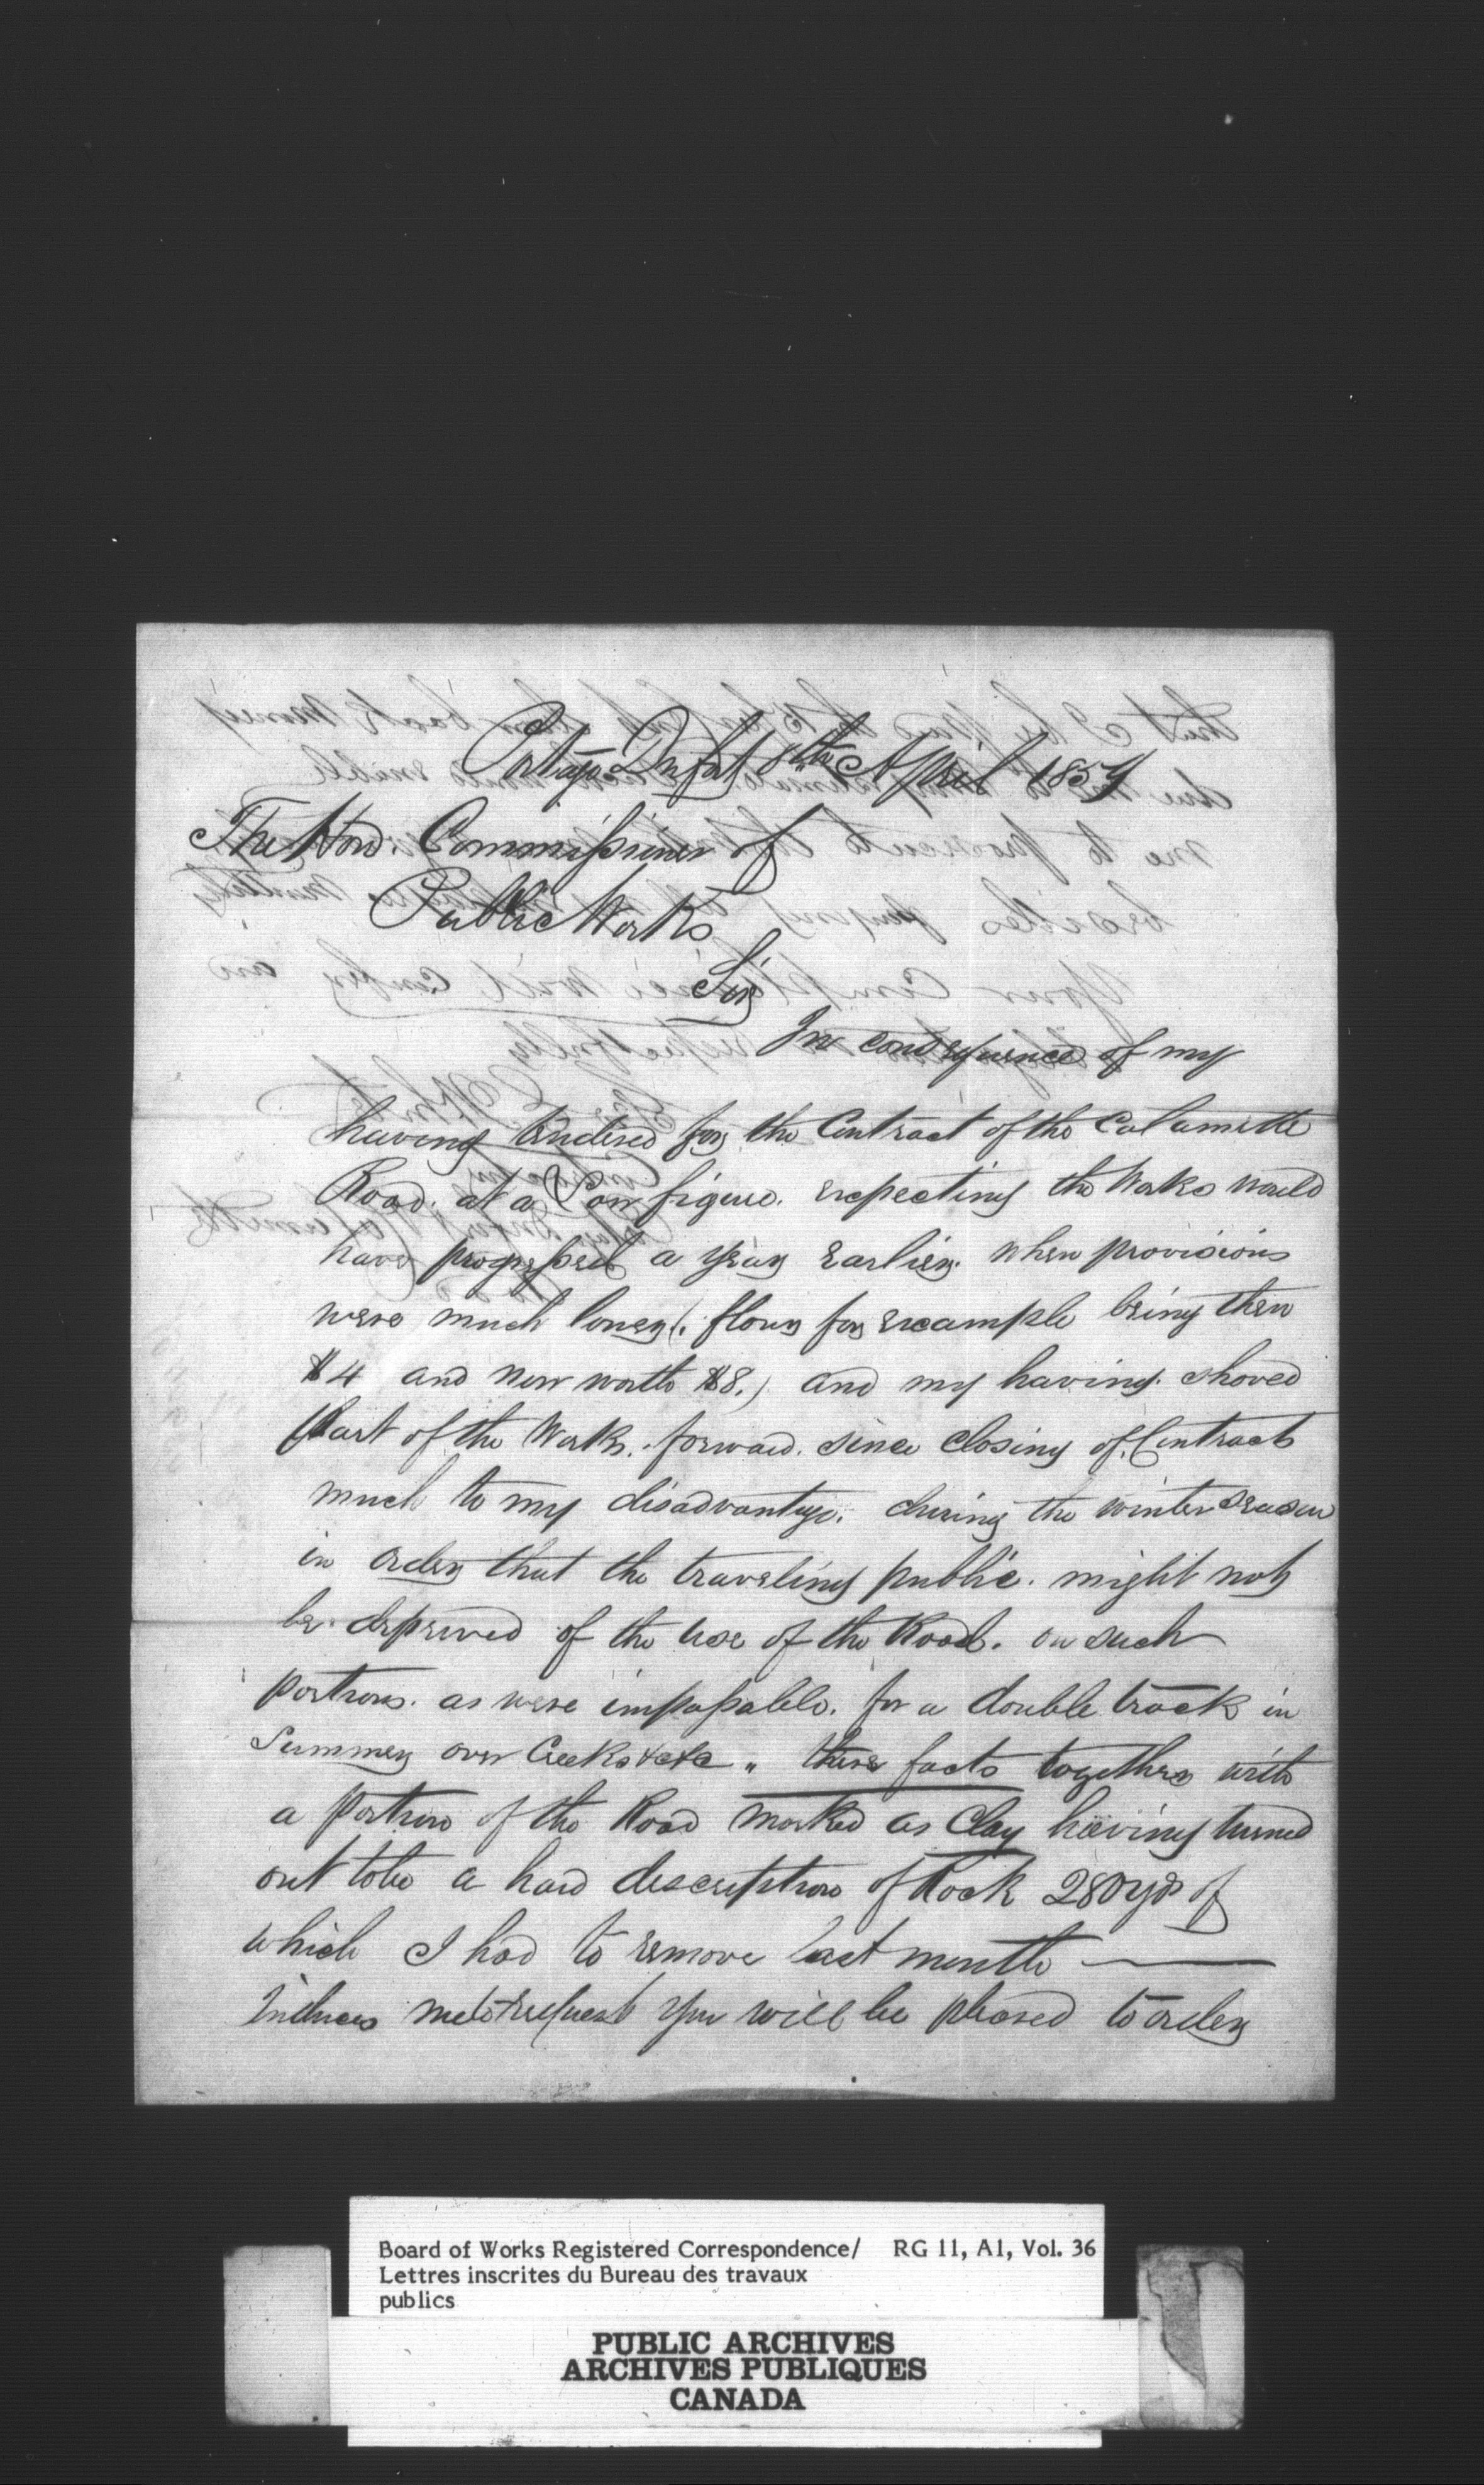 Portage Dufort 18th April 1854
The Hon. Commissioner of
Public Works
Sir
In consequence of my
having tendered for the Contract of the Calumette
Road. at a Low figure. expecting the Works would
have progressed a year earlier. when provisions
were much lower (. flour for example being then
$4 and now worth $8.) and my having shoved
Part of the Works. forward. since closing of Contract
much to my disadvantage. during the winter season
in order that the traveling public. might not
be deprived of the use of the Road. on such
portions. as were impassable. for a double track in
Summer over Creeks &c&c " these facts together with
a portion of the Road marked as Clay having turned
out to be a hard description of Rock 280 yds of
which I had to remove last month
Induces me to request you will be pleased to order
Board of Works Registered Correspondence/ RG 11, A1, Vol. 36
Lettres inscrites du Bureau des travaux
publics
PUBLIC ARCHIVES
ARCHIVES PUBLIQUES
CANADA